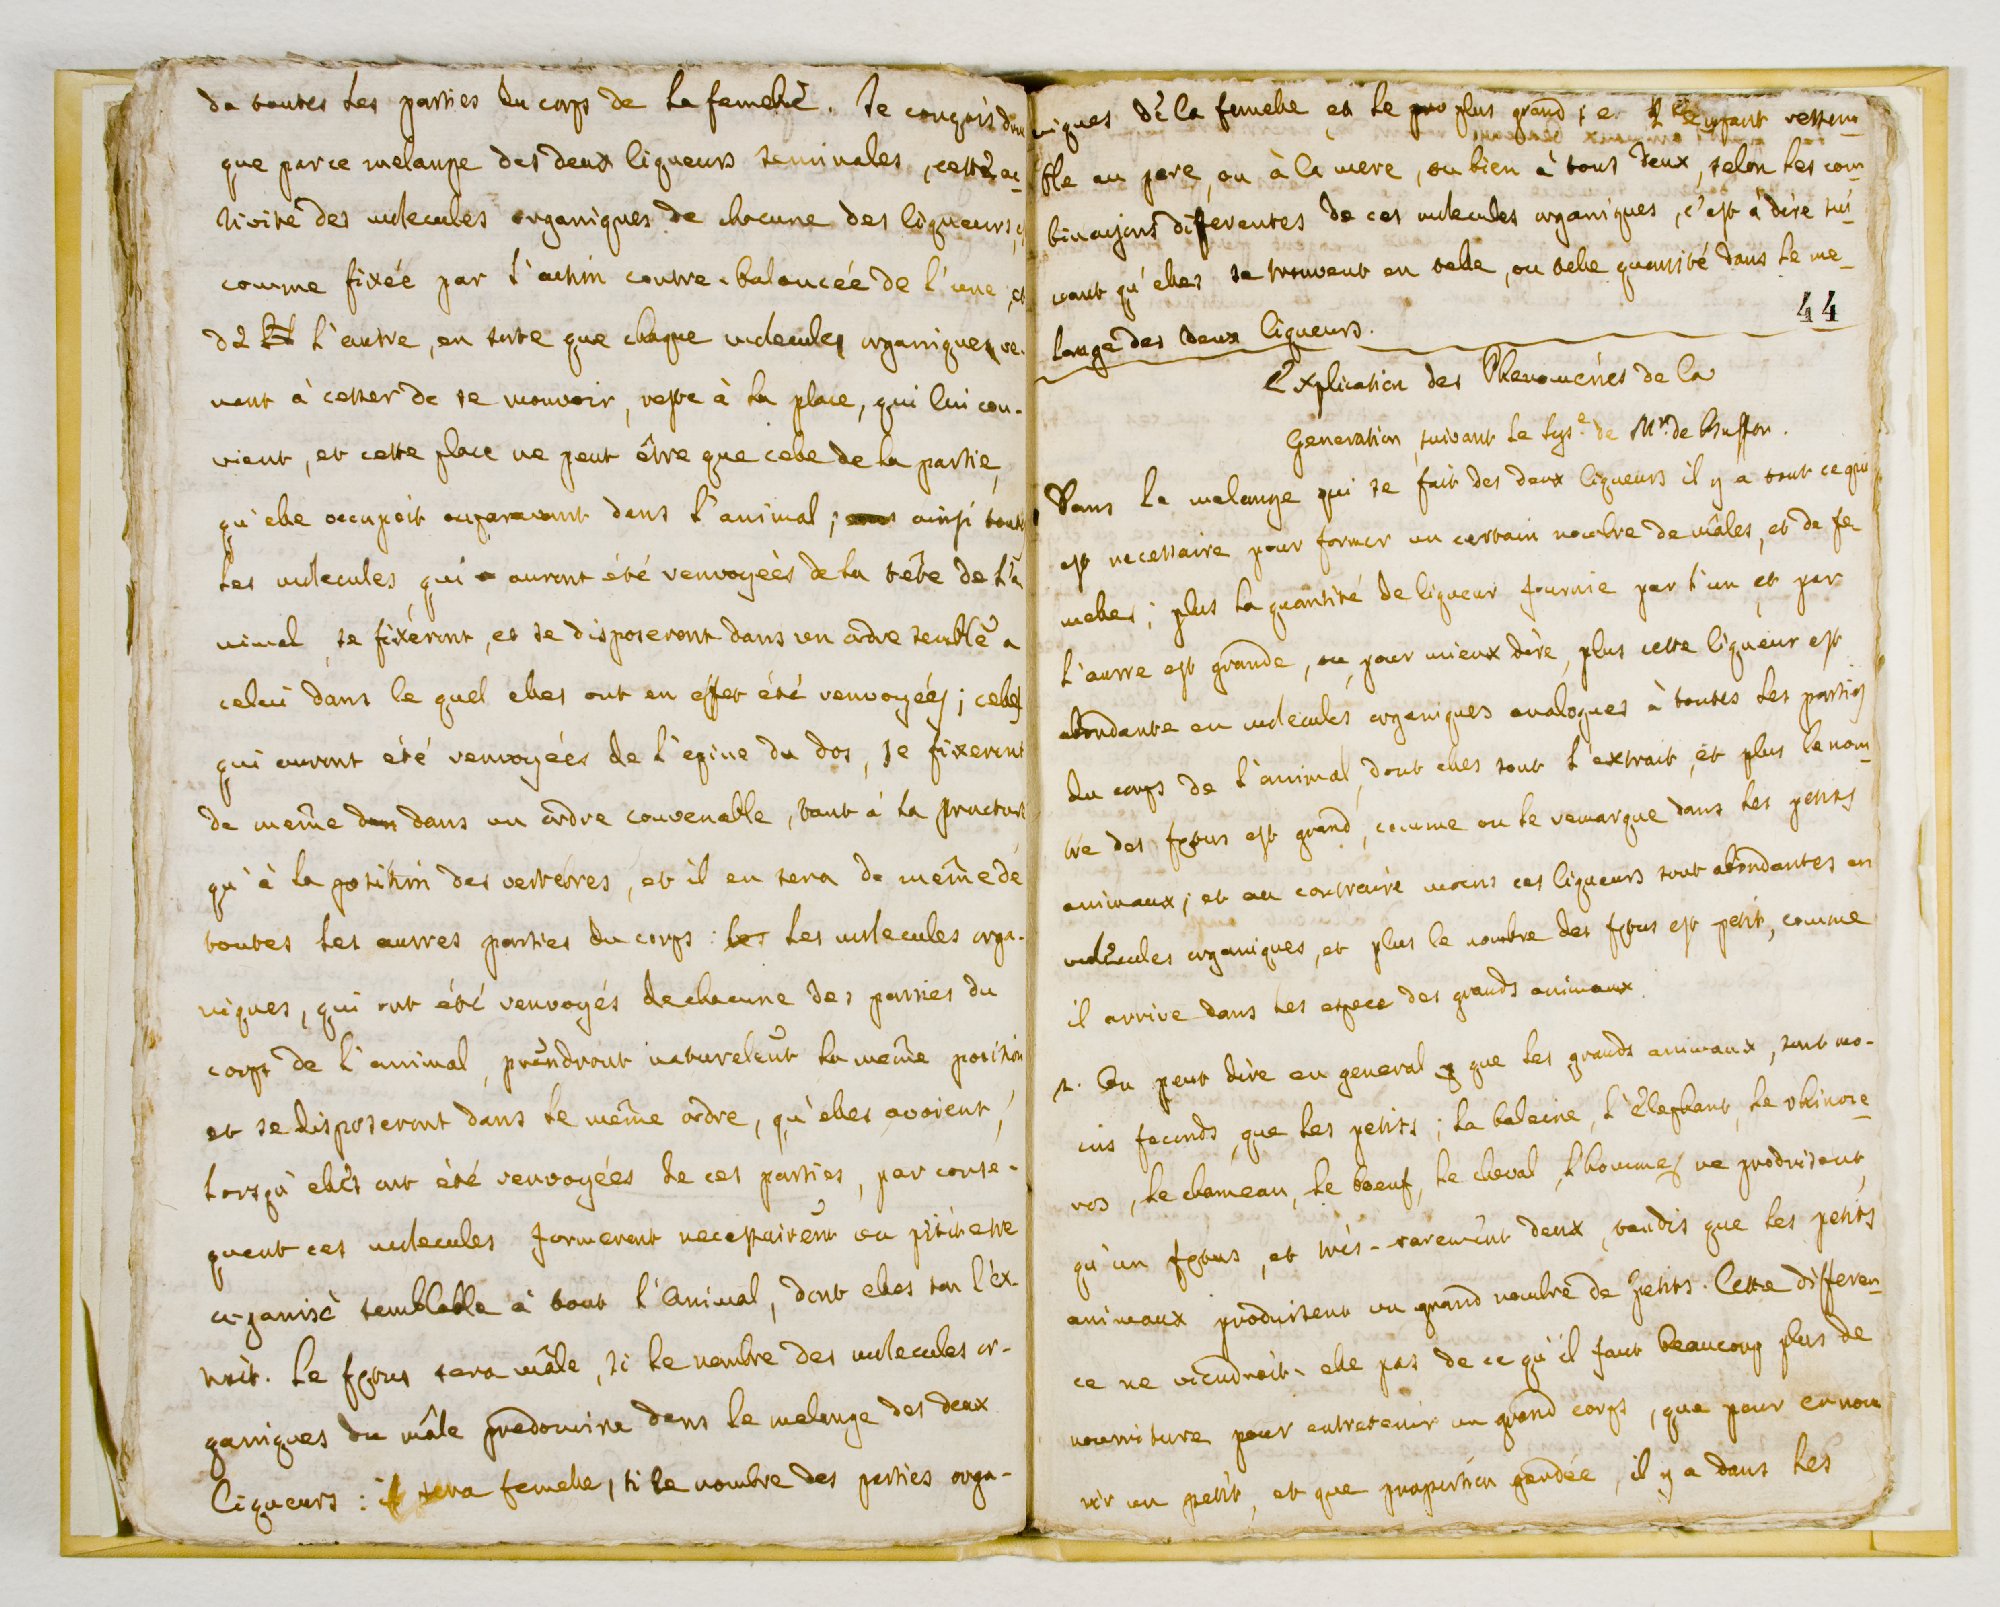 de toutes les parties du corps de la femelle. Je conçois donc
que par ce melange des deux liqueurs seminales, cette ac-
tivité des molecules organiques de chacune des liqueurs, est
comme fixée par l'action contre-balancée de l'une, et
de l'autre, en sorte que chaque molecule organique ve-
nant à cesser de se mouvoir, reste à la place, qui lui con-
vient, et cette place ne peut être que celle de la partie,
qu'elle occupoit auparavant dans l'animal; ainsi toutes
les molecules, qui auront été renvoyées de la tête de l'a
nimal, se fixeront, et se disposeront dans un ordre semblē a
celui dans le quel elles ont en effet été renvoyées; celles
qui auront été renvoyées de l'epine du dos, se fixeront
de même dans un ordre convenable, tant à la structure
qu'à la position des vertebres, et il en sera de même de
toutes les autres parties du corps: les molecules orga-
niques, qui ont été renvoyés de chacune des parties du
corps de l'animal, prendront naturelēnt la même position
et se disposeront dans le même ordre, qu'elles avoient,
lorsqu'elles ont été renvoyées de ces parties, par conse-
quent ces molecules formeront necessairēnt un petit etre
organisé semblable à tout l'Animal, dont elles son l'ex-
trait. Le fœtus sera mâle, si le nombre des molecules or-
ganiques du mâle predomine dans le melange des deux
liqueurs: il sera femelle, si le nombre des parties orga-
niques de la femelle est le plus grand; et l'enfant ressem-
ble au pere, ou à la mere, ou bien à tous deux, selon les com-
binaisons differentes de ces molecules organiques, c'est à dire sui-
vant qu'elles se trouvent en telle, ou telle quantité dans le me-
lange des deux liqueurs.
44
Explication des Phenomenes de la
Generation, suivant le Syse. de Mr. de Buffon.
Dans le melange qui se fait des deux liqueurs il y a tout ce qui
est necessaire pour former un certain nombre de mâles, et de fe
melles; plus la quantité de liqueur fournie par l'un, et par
l'autre est grande, ou, pour mieux dire, plus cette liqueur est
abondante en molecules organiques analogues à toutes les parties
du corps de l'animal, dont elles sont l'extrait, et plus le nom-
bre des fœtus est grand, comme on le remarque dans les petits
animaux; et au contraire moins ces liqueurs sont abondantes en
molecules organiques, et plus le nombre des fœtus est petit, comme
il arrive dans les espece des grands animaux.
1. On peut dire en general que les grands animaux, sont mo-
ins feconds, que les petits; la baleine, l'Elephant, le rhinoce-
ros, le chameau, le boeuf, le cheval, l'homme, ne produisent,
qu'un fœtus, et très-rarement deux, tandis que les petits
animaux produisent un grand nombre de petits. Cette differen-
ce ne viendroit-elle pas de ce qu'il faut beaucoup plus de
nourriture pour entretenir un grand corps, que pour en nour
rir un petit, et que proportion gardée, il y a dans les